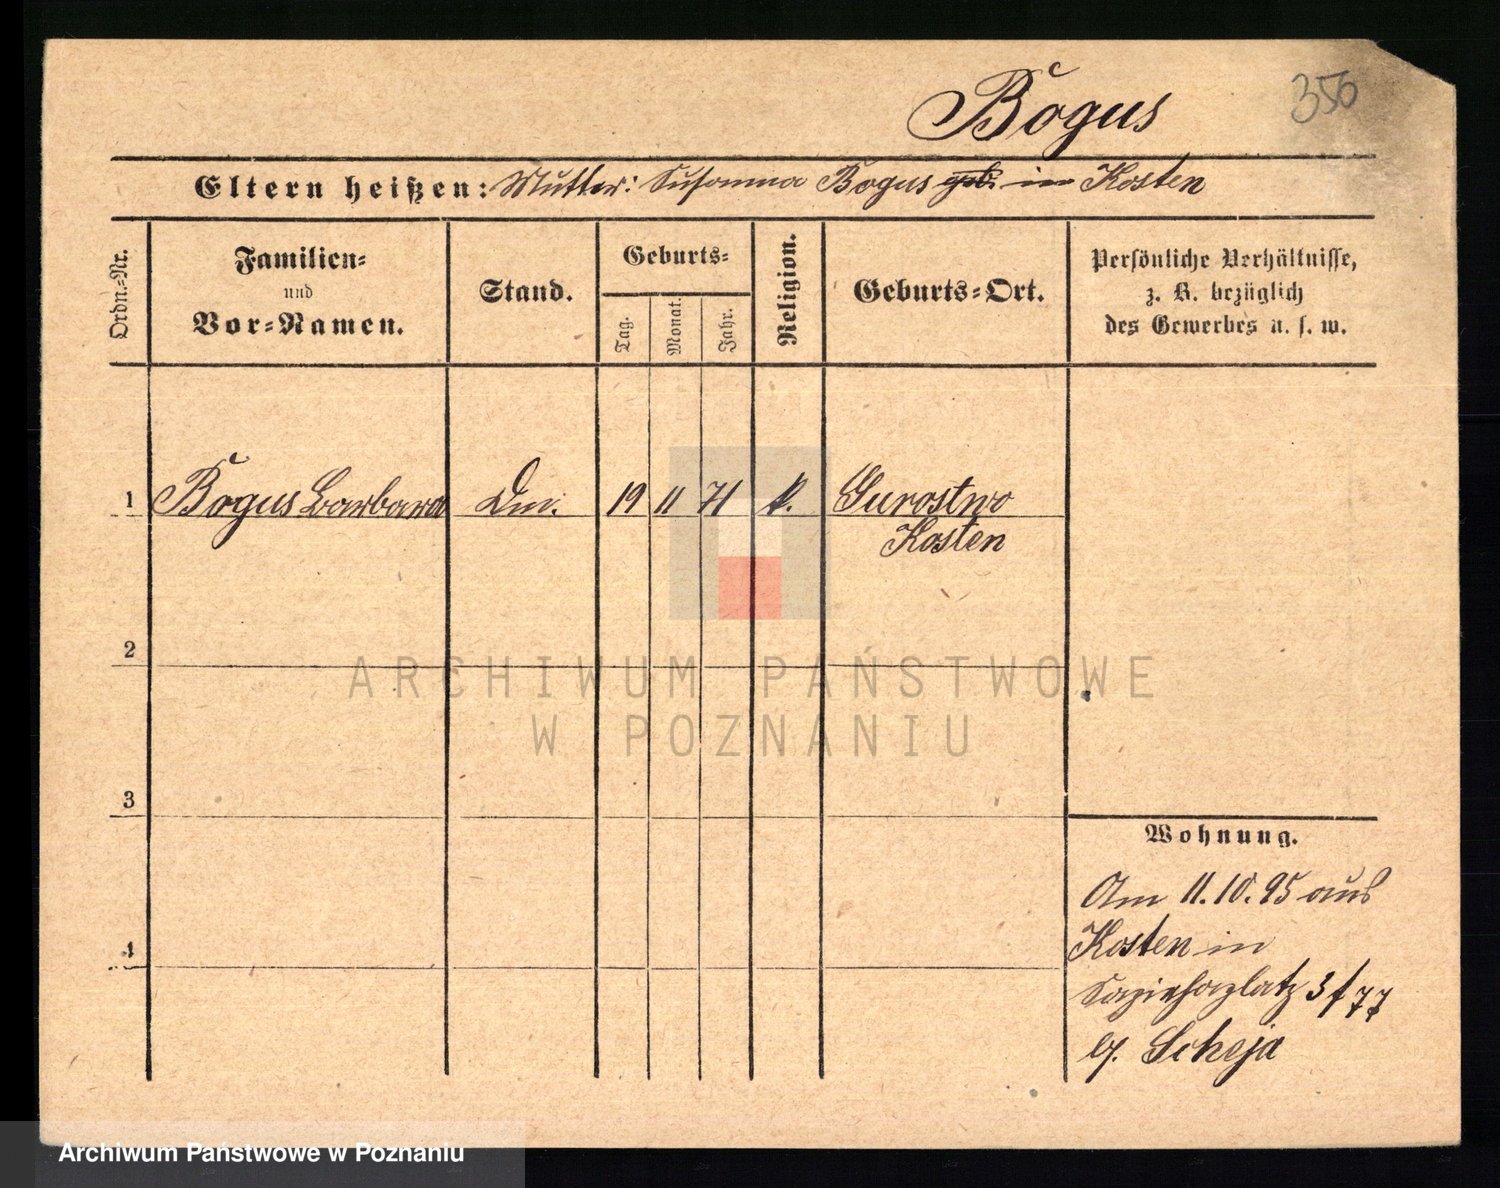 350
Bogus
Eltern heißen: Mutter: Susanna Bogus geb. in Kosten
Ordn.-Nr.
Familien-
und
Vor-Namen.
Stand.
Geburts-
Tag.
Monat.
Jahr.
Religion.
Geburts-Ort.
Persönliche Verhältnisse,
z. B. bezüglich
des Gewerbes u. s. w.
1 Bogus Barbara Dm. 19 11 71 k. Gurostwo
Kosten
2
3
4
Wohnung.
Am 11.10.95 aus
Kosten in
Sapiehaplatz 3/77
b/. Scheja
ARCHIWUM PAŃSTWOWE
W POZNANIU
Archiwum Państwowe w Poznaniu